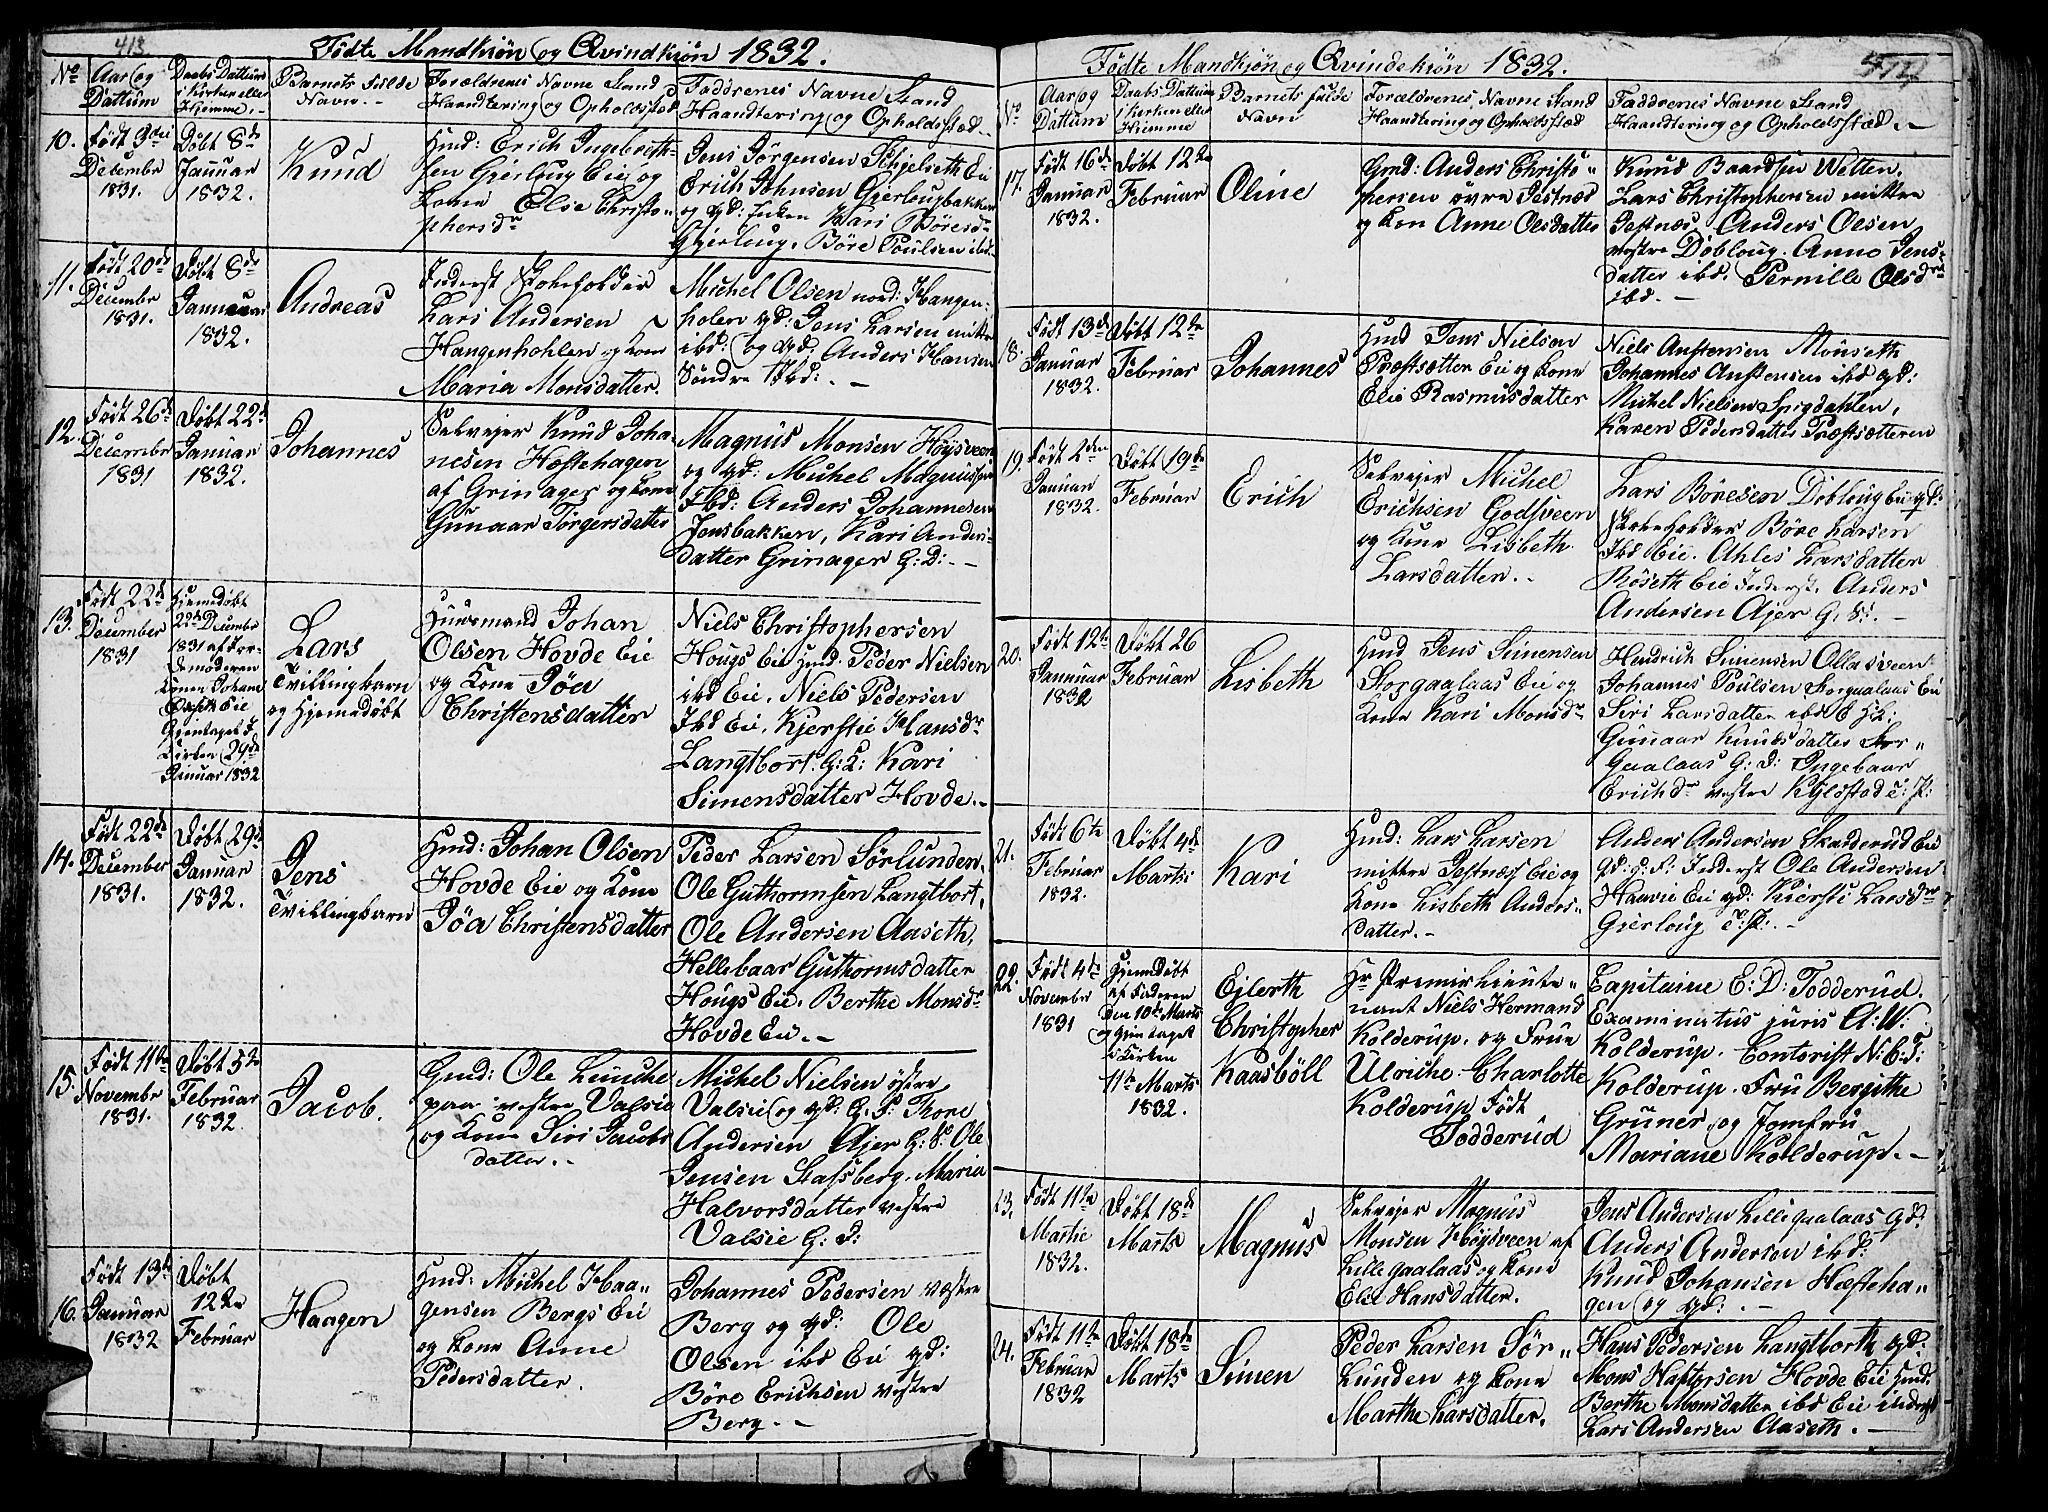 413.
Fødte Mandkiøn og Qvindkiøn 1832.
No
Aar og
Dattum
Daabs Dattum
i Kirken eller
Hiemme.
Barnets Fulde
Navn.
Forældrenes Navne Stand
Haandtering og Opholdsted
Faddrenes Navne Stand
Haandtering og Opholdssted.
10.
Født 9de
December
1831.
Døbt 8de
Januar
1832.
Knud
Hmd: Erich Ingebreth-
sen Gierloug Eie og
Kone Else Christo=
phersdr
Jens Jørgensen Schjelseth Eie
Erich Johnsen Gierlougbakken
og qd: Kari Böresdr
Gjerloug, Böre Poulsen ibd.
11.
Født 20de
December
1831.
Døbt 8de
Januar
1832.
Andreas
Inderst Skoleholder
Lars Andersen
Hangenhohlen og Kone
Maria Monsdatter.
Michel Olsen nord: Hangen-
holen qd: Jens Larsen mittre
ibd: og qd: Anders Hansen
Söndre Ibd:
12.
Født 26de
December
1831
Døbt 22de
Januar
1832.
Johannes
Selvejer Knud Joha-
nesen Hæstehagen
af Grinager og Kone
Gunaar Torgersdatter
Magnus Monsen Höysveen
og qd: Michel Magnussen
Ibd: Anders Johannesen
Jonsbakken, Kari Anders-
datter Grinager G: D:
13.
Født 22de
December
1831
Hjemedøbt
22de December
1831 af Jor-
demoderen
Konen Johan
Eie
Gjentaget i
Kirken 29de
Januar 1832
Lars
Tvillingbarn
og Hjemedøbt
Huusmand Johan
Olsen Hovde Eie
og Kone Jöa
Christensdatter
Niels Christophersen
Hougs Eie Hmd: Peder Nielsen
ibd Eie, Niels Pedersen
Ibd Eie, Kjerstie Hansdr
Langtbort. G: D: Kari
Simensdatter Hovde.
14.
Født 22de
December
1831.
Døbt 29de
Januar
1832.
Jens
Tvillingbarn
Hmd: Johan Olsen
Hovde Eie og Kone
Jöa Christensdatter
Peder Larsen Sörlunden,
Ole Guthormsen Langtbort,
Ole Andersen Aaseth,
Hellebaar Guthormsdatter
Hougs Eie, Berthe Monsdr
Hovde Eie.
15.
Født 11te
Novembr
1831.
Døbt 5te
Februar
1832.
Jacob.
Gmd: Ole Lunche
paa vestre Valsie
og Kone Siri Jacobs
datter.
Michel Nielsen östre
Valsie og qd: G. S: Tore
Andersen Ajer G: S: Ole
Jensen Stafsberg, Maria
Halvorsdatter vestre
Valsie G: D:
16.
Født 13de
Januar
1832
Døbt
12te
Februar
Haagen
Hmd: Michel Haa=
gensen Bergs Eie
og Kone Anne
Pedersdatter.
Johannes Pedersen vestre
Berg og qd: Ole
Olsen ibd Eie qd:
Böre Erichsen vestre
Berg.
Fødte Mandkiøn og Qvindekiøn 1832.
414
No
Aar og
Dattum
Daabs Dattum
i Kirken eller
Hiemme
Barnets Fulde
Navn
Forældrenes Navne Stand
Haandtering og Opholdssted
Faddrenes Navne Stand
Haandtering og Opholdssted.
17.
Født 16de
Januar
1832.
Døbt 12te
Februar
Oline
Gmd: Anders Christo=
phersen övre Jestnæs
og Kone Anne Olsdatter
Knud Baardsen Wetten.
Lars Christophersen mittre
Jestnæs, Anders Olsen
vestre Dobloug. Anne Jens-
datter ibd. Pernille Olsdr
ibd.
18.
Født 13de
Januar
1832.
Døbt 12te
Februar
Johannes
Hmd Jens Nielsen
Præstsætter Eie og Kone
Elie Rasmusdatter
Niels Anstensen Mönseth
Johannes Anstensen ibd qd:
Michel Nielsen Spigdahlen,
Karen Pedersdatter Præstsætteren
19.
Født 2den
Januar
1832.
Døbt 19de
Februar
Erich
Selvejer Michel
Erichsen Godsveen
og Kone Lisbeth
Larsdatter.
Lars Böresen Dobloug Eie qd:
Skoleholder Böre Larsen
Ibd Eie. Ahles Larsdatter
Röseth Eie Inderst, Anders
Andersen Ajer G. S:
20.
Født 12te
Januar
1832
Døbt 26
Februar
Lisbeth
Hmd Jens Simensen
Storgaalaas Eie og
Kone Kari Monsdr
Hendrich Simensen Ollasveen
Johannes Poulsen Storgaalaas Eie
Siri Larsdatter ibd E
Gunaar Knudsdatter Stor=
Gaalaas G: D: Ingebaar
Erichdr vestre Kylstad
21.
Født 6te
Februar
1832.
Døbt 4de
Marts
Kari
Hmd: Lars Larsen
mittre Jestnæs Eie og
Kone Lisbeth Anders=
datter.
Anders Andersen Skarderud Eie
Inderst Ole Andersen
Haavie Eie qd: Kiersti Larsdr
Gierloug
22.
Født 4de
November
1831
Hjemedøbt
af Faderen
den 10de Marts
og Gjentaget
i Kirken
11te Marts
1832.
Ejlerth
Christopher
Kaasböll
Hr Premierlieute=
nant Niels Hermand
Kolderup, og Frue
Ulriche Charlotte
Kolderup Født
Todderud
Capitaine E: D: Todderud.
Examinatus juris A: W:
Kolderup. Contorist N: C: T:
Kolderup. Fru Bergithe
Gruner og Jomfru
Mariane Kolderup.
23.
Født 11te
Martie
1832.
Døbt 18de
Marts
Magnus
Selvejer Magnus
Monsen Höysveen af
Lille gaalaas og Kone
Elie Hansdatter.
Jens Andersen Lille gaalaas qd:
Anders Andersen ibd:
Knud Johansen Hæsteha=
gen og qd:
24.
Født 11te
Februar
1832
Døbt 18de
Marts
Simen
Peder Larsen Sör=
lunden og Kone
Marthe Larsdatter.
Hans Pedersen Langtborth qd:
Mons Haftorsen Hovde Eie Hmd.
Berthe Monsdatter ibd Eie inderst
Lars Andersen Aaseth.